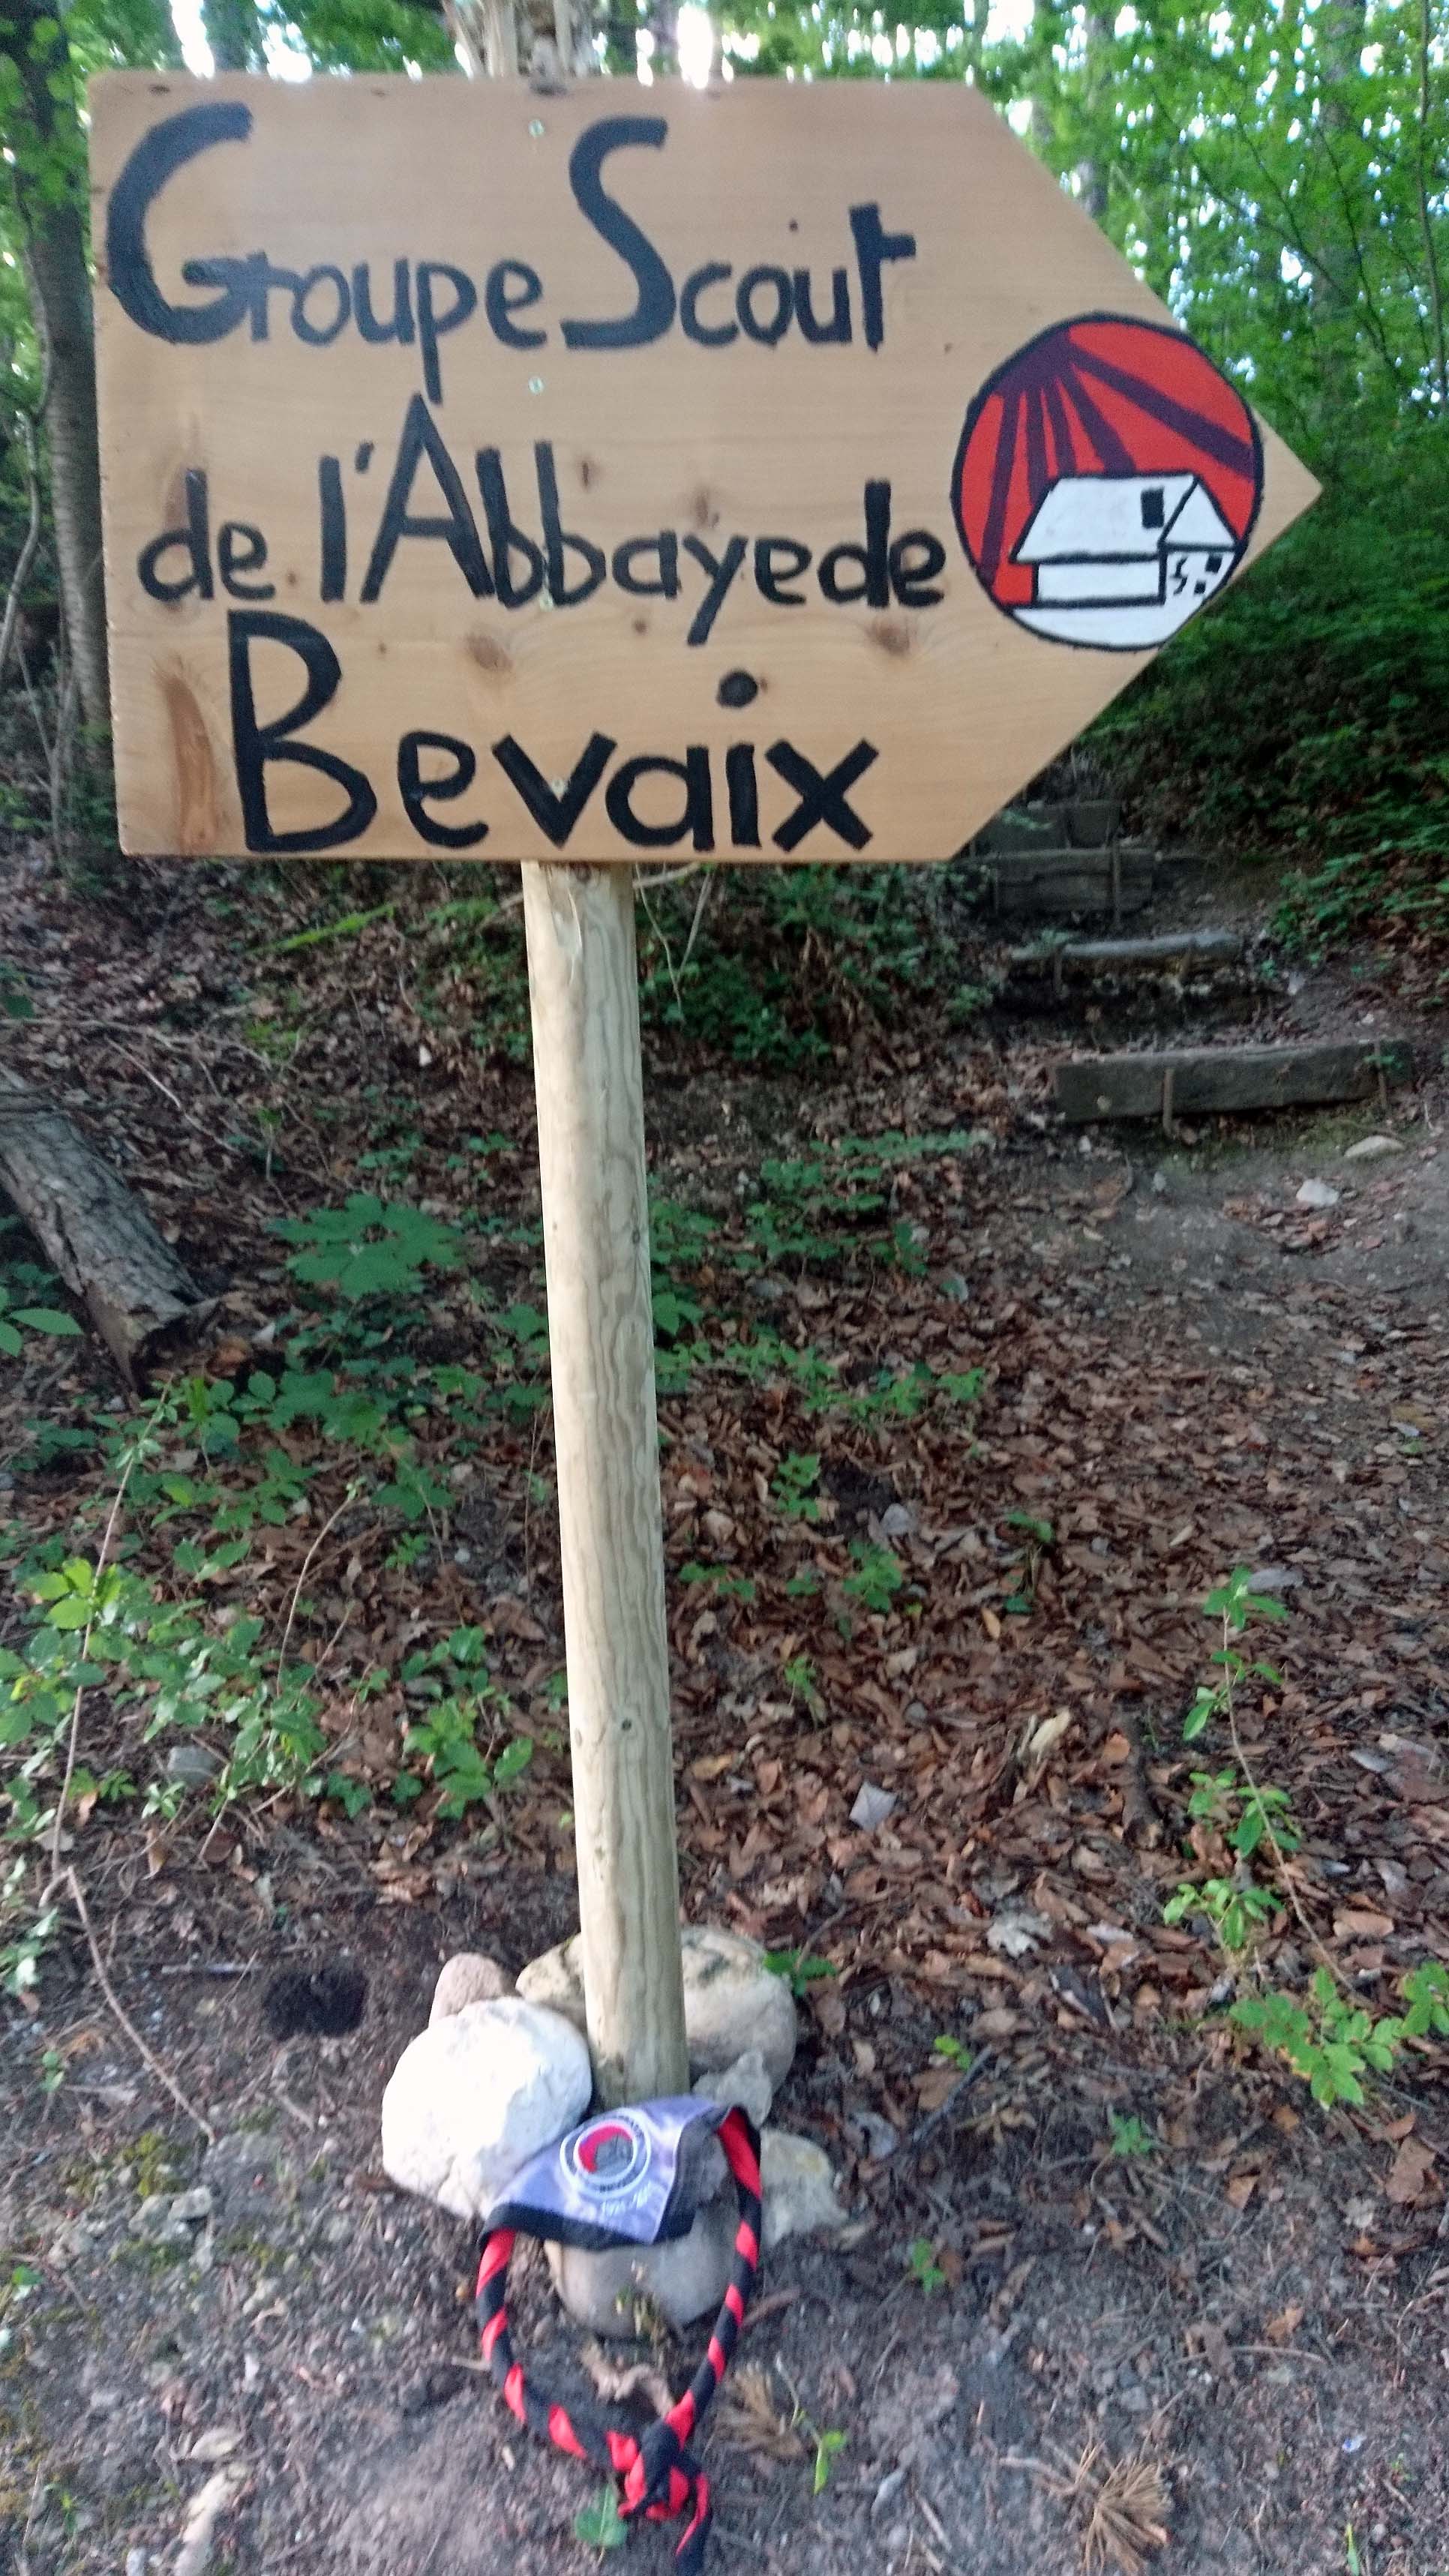 Groupe Scout
de l'Abbaye de
Bevaix